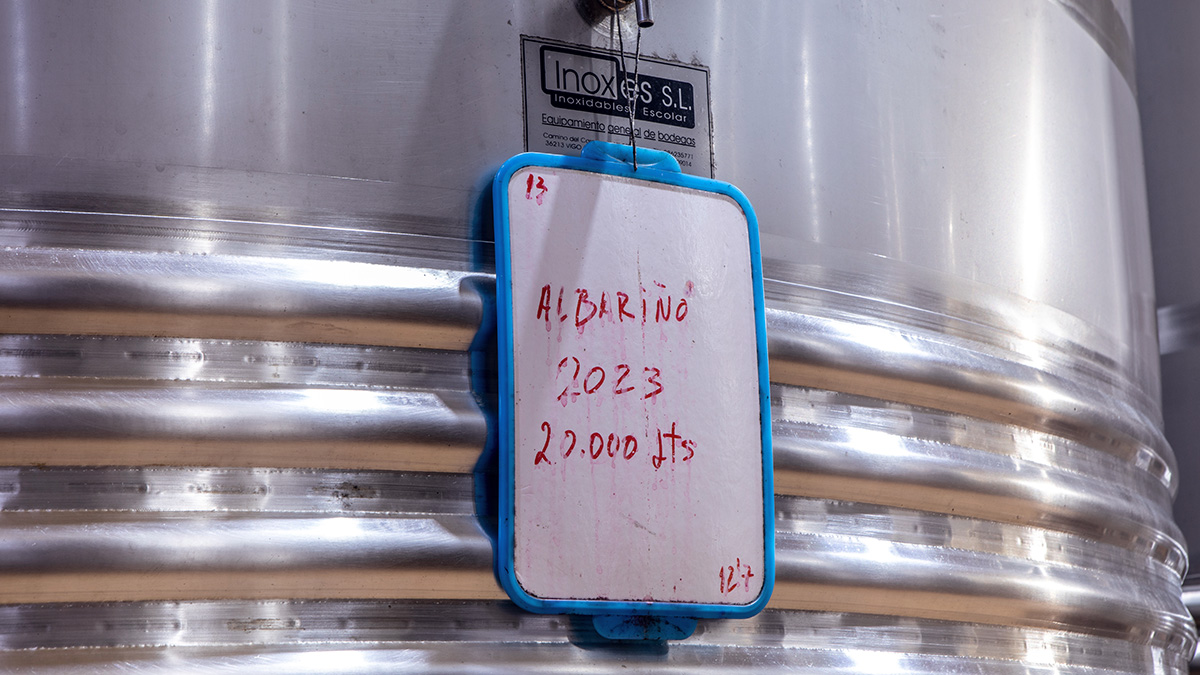 Inoxes S.L.
Inoxidables Escolar
Equipamiento general de bodegas
Camino del
36213 VIGO
13
ALBARIÑO
2023
20.000 lts
12'7